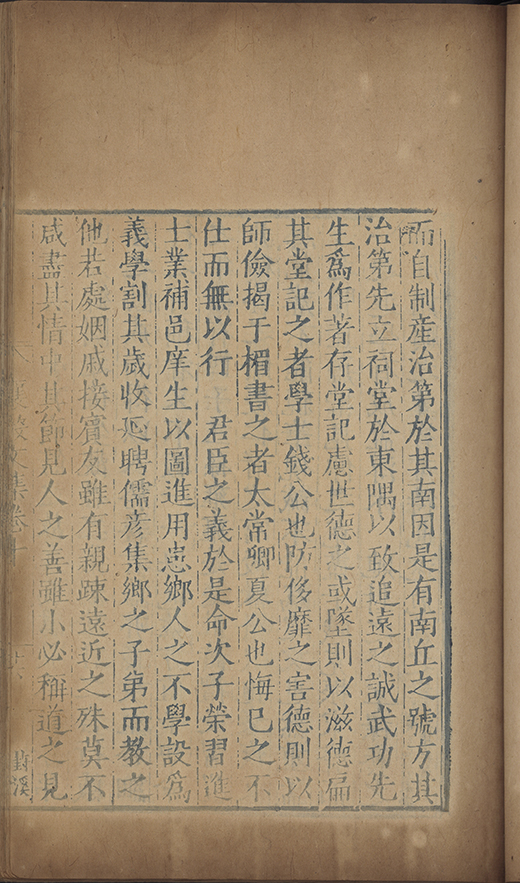 而自制產治第於其南因是有南丘之號方其
治第先立祠堂於東隅以致追遠之誠武功先
生爲作著存堂記慮世德之或墜則以滋德扁
其堂記之者學士錢公也防侈靡之害德則以
師儉揭于楣書之者太常卿夏公也悔已之不
仕而無以行 君臣之義於是命次子榮習進
士業補邑庠生以圖進用患鄉人之不學設爲
義學割其歲收延聘儒彥集鄉之子弟而教之
他若處姻戚接賓友雖有親踈遠近之殊莫不
咸盡其情中其節見人之善雖小必稱道之見
文集卷十